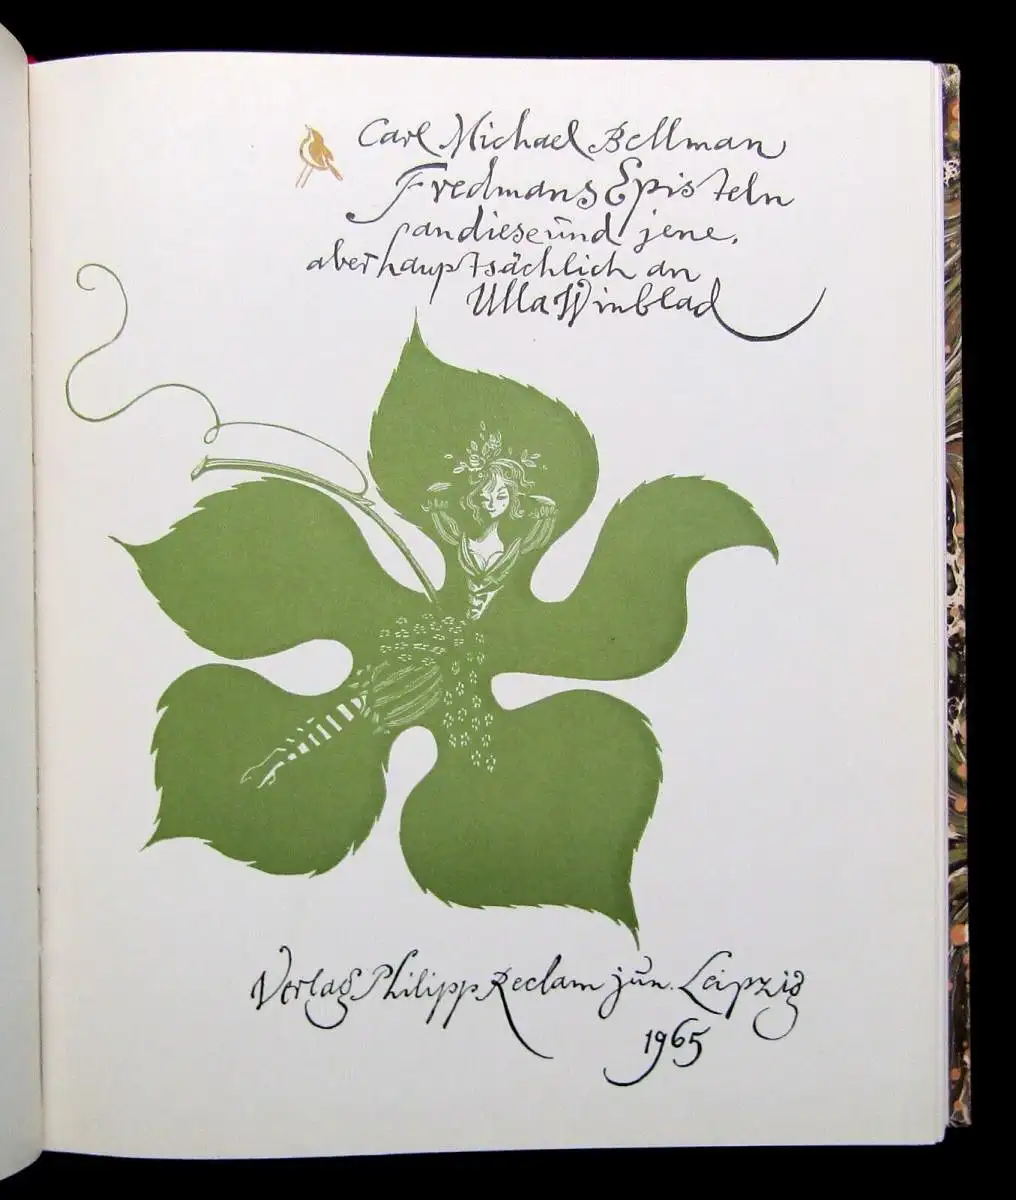 Carl Michael Bellman
Fredmans Episteln
an diese und jene,
aber hauptsächlich an
Ulla Winblad
Verlag Philipp Reclam jun. Leipzig
1965